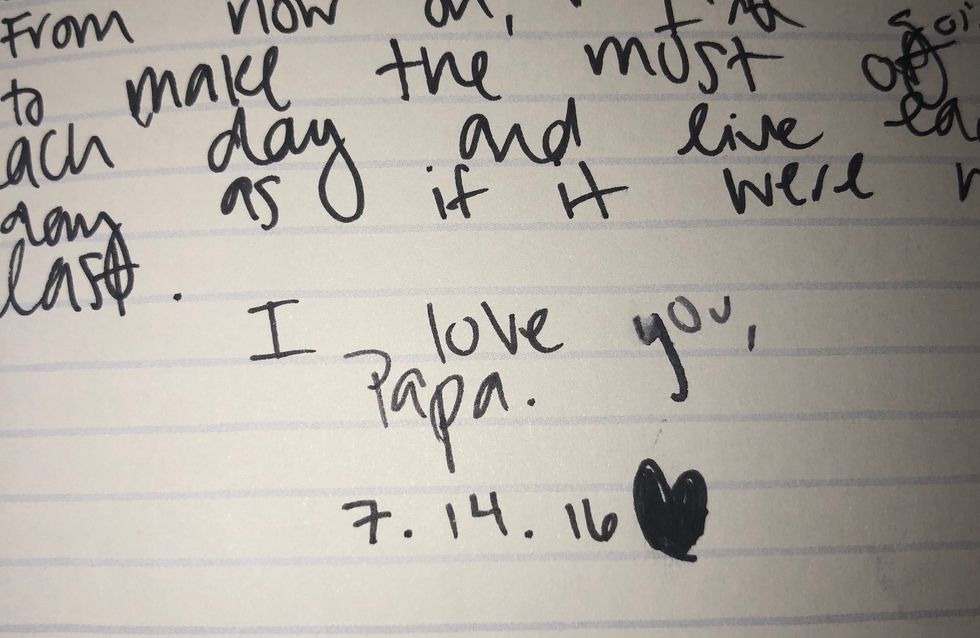 From now on,
to make the most of
each day and live
day as if it were
last.
I love you,
Papa.
7.14.16